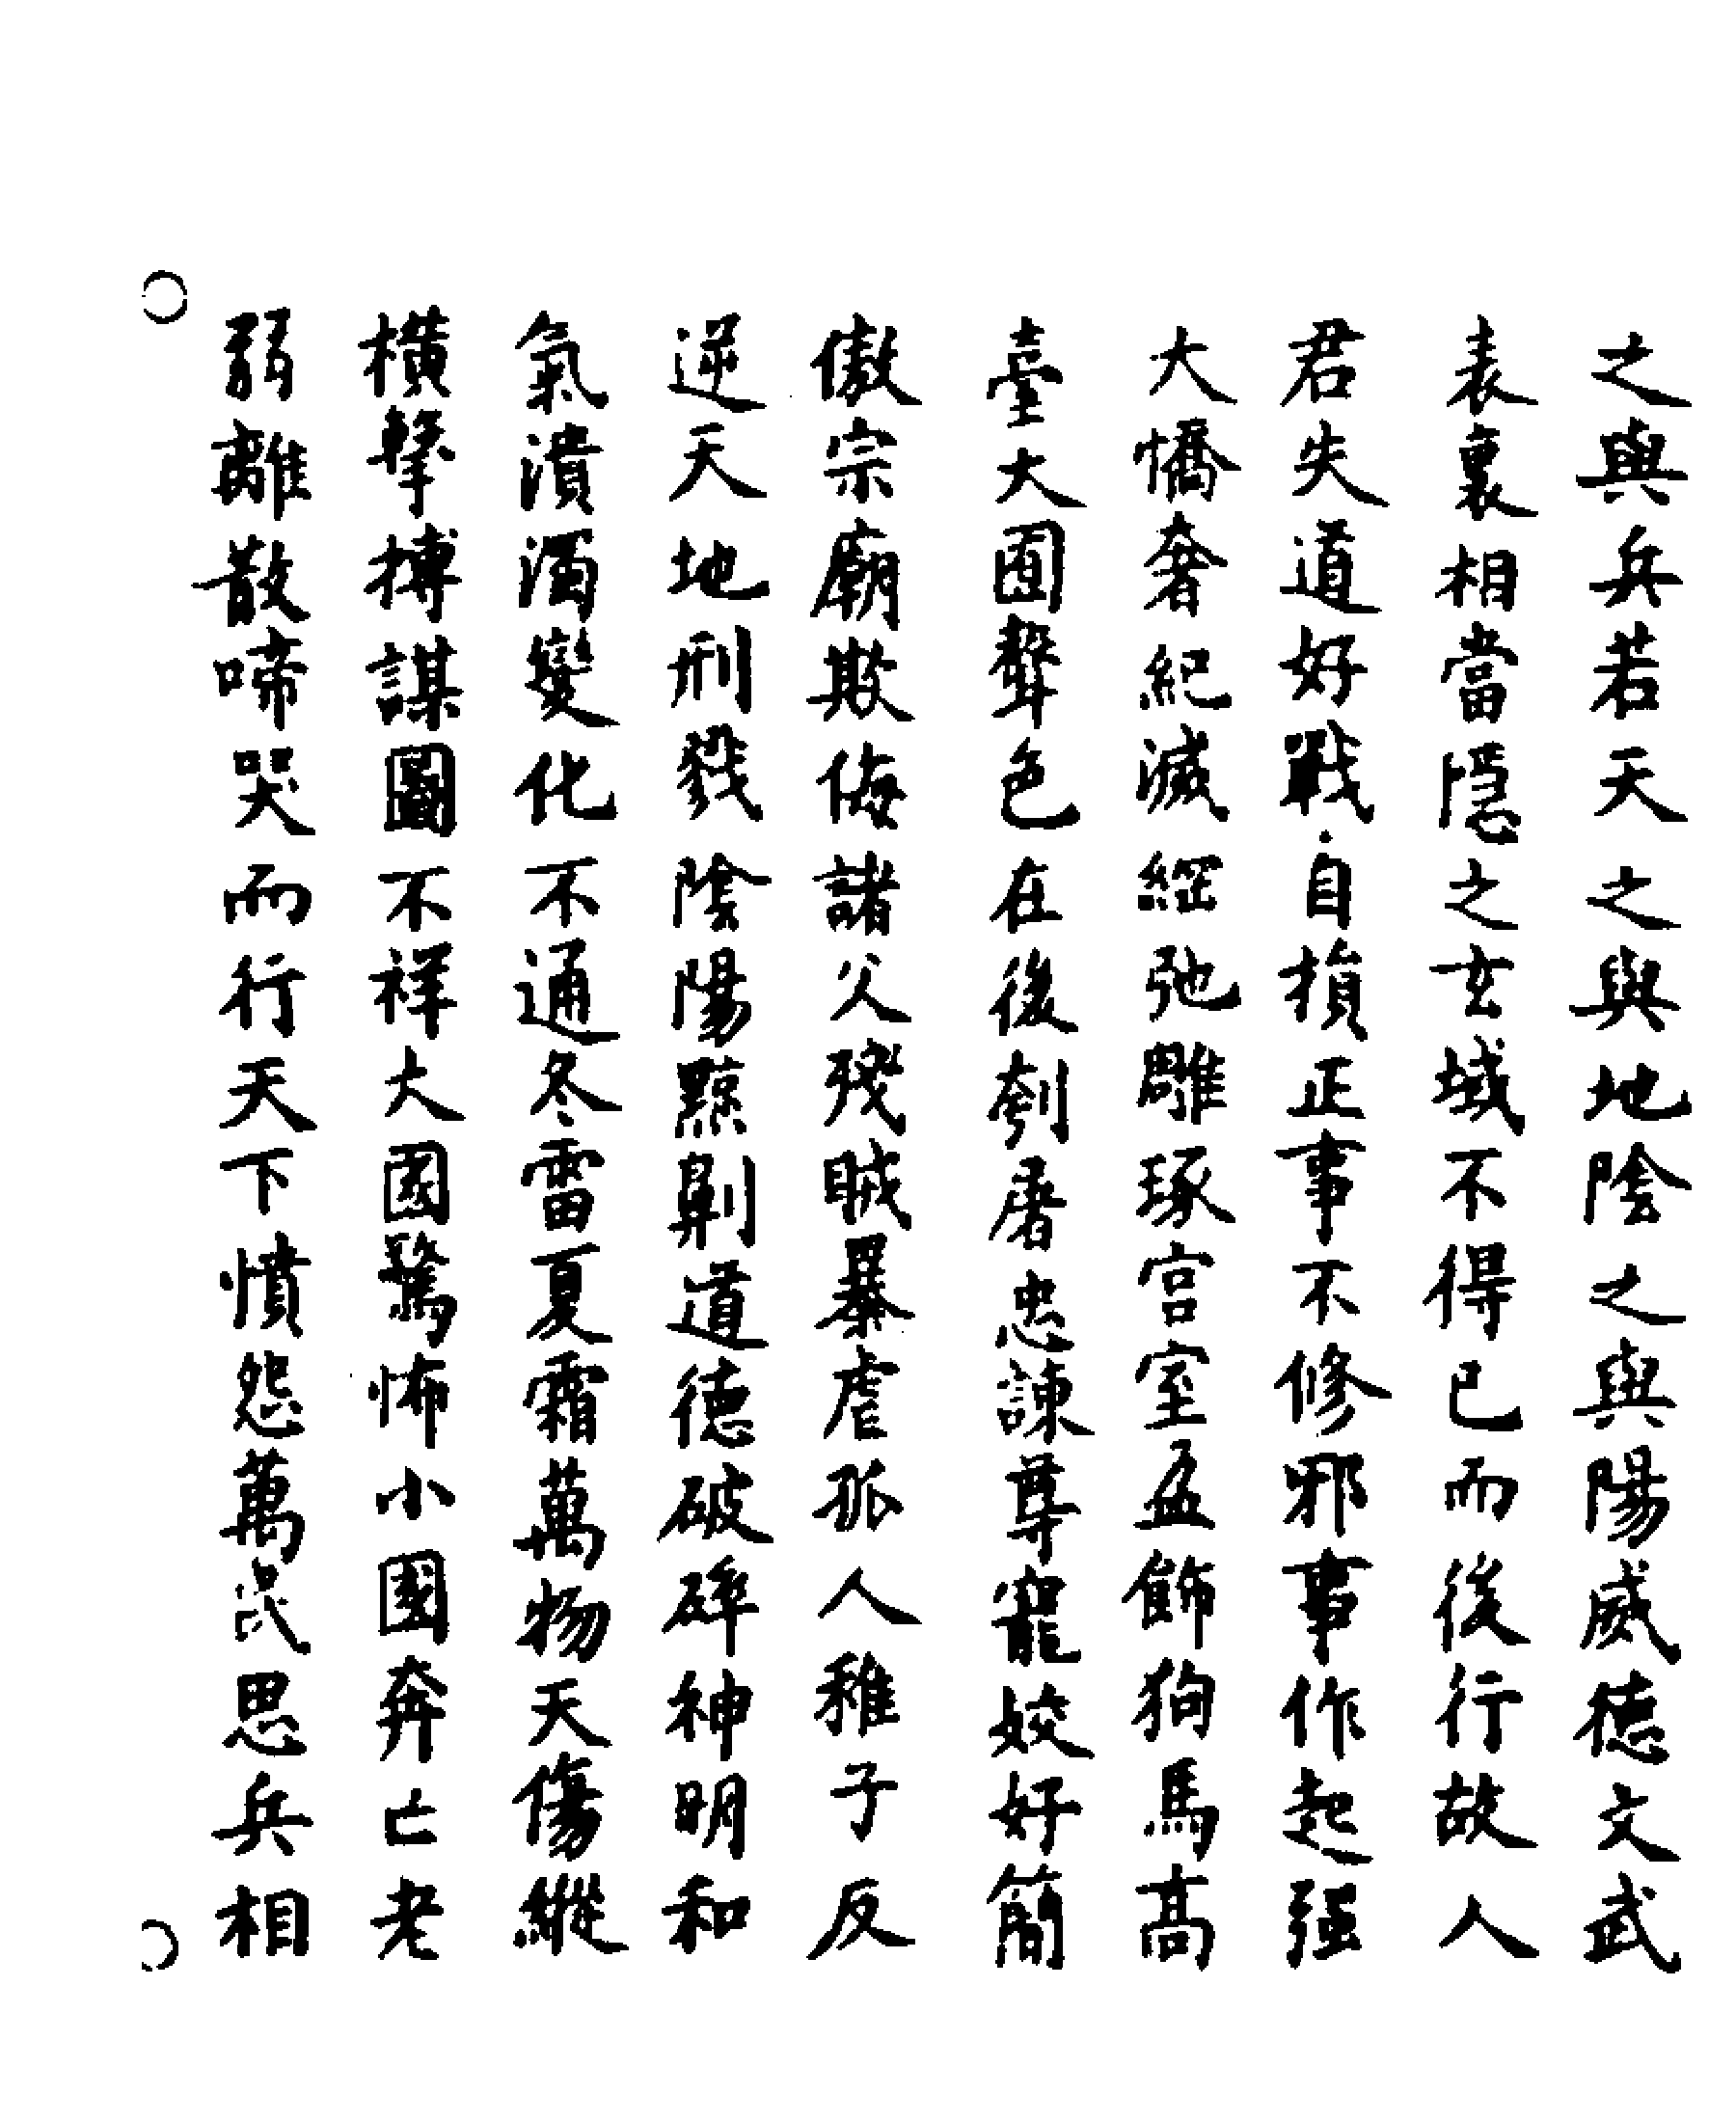 之與兵若天之與地陰之與陽威德文武
表裏相當隱之玄域不得已而後行故人
君失道好戰自損正事不修邪事作起强
大憍奢紀滅綱弛雕琢宮室盃飾狗馬高
臺大囿聲色在後刳屠忠諫尊寵姣好簡
傲宗廟欺侮諸父殘賊暴虐孤人稚子反
逆天地刑戮陰陽黥劓道德破碎神明和
氣潰濁變化不通冬雷夏霜萬物夭傷縱
橫擊搏謀圖不祥大國驚怖小國奔亡老
弱離散啼哭而行天下憤怨萬民思兵相